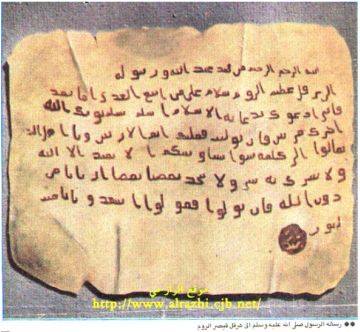 بسم الله الرحمن الرحيم من محمد عبد الله ورسوله
الى هرقل عظيم الروم سلام على من اتبع الهدى اما بعد
فانى ادعوك بدعاية الاسلام اسلم تسلم يوتك الله
اجرك مرتين فان توليت فعليك اثم الاريسين ويا اهل
تعالوا الى كلمة سوا بيننا وبينكم الا نعبد الا الله
ولا نشرك به شيا ولا يتخذ بعضنا بعضا اربابا من
دون الله فان تولوا فقولوا اشهدوا بانا مسـ
ـلمون
موقع الرازحي
http://www.alrazhi.cjb.net/
●● رسالة الرسول صلى الله عليه وسلم الى هرقل قيصر الروم